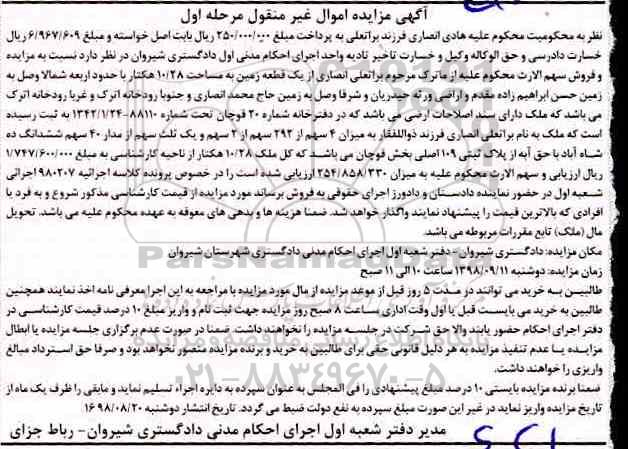 آگهی مزایده اموال غیر منقول مرحله اول
نظر به محکومیت محکوم علیه هادی انصاری فرزند براتعلی به پرداخت مبلغ ۲۵۰/۰۰۰/۰۰۰ ریال بابت اصل خواسته و مبلغ ۶/۹۶۷/۶۰۹ ریال
خسارت دادرسی و حق الوکاله وکیل و خسارت تاخیر تادیه واحد اجرای احکام مدنی اول دادگستری شیروان در نظر دارد نسبت به مزایده
و فروش سهم الارث محکوم علیه از ماترک مرحوم براتعلی انصاری از یک قطعه زمین به مساحت ۱۰/۲۸ هکتار با حدود اربعه شمالا وصل به
زمین حسن ابراهیم زاده مقدم و اراضی ورثه حیدریان و شرقا وصل به زمین حاج محمد انصاری و جنوبا رودخانه اترک و غربا رودخانه اترک
می باشد که ملک دارای سند اصلاحات ارضی می باشد که در دفترخانه شماره ۲۰ قوچان تحت شماره ۸۸۱۱۰-۱۳۴۲/۱/۲۴ به ثبت رسیده
است که ملک به نام براتعلی انصاری فرزند ذوالفقار به میزان ۴ سهم از ۲۹۲ سهم از ۲ سهم و یک ثلث سهم از مدار ۴۰ سهم ششدانگ ده
شاه آباد با حق آبه از پلاک ثبتی ۱۰۹ اصلی بخش قوچان می باشد که کل ملک ۱۰/۲۸ هکتار از ناحیه کارشناسی به مبلغ ۱/۷۴۷/۶۰۰/۰۰۰
ریال ارزیابی و سهم الارث محکوم علیه به میزان ۲۵۴/۸۵۸/۳۳۰ ارزیابی شده است را در خصوص پرونده کلاسه اجرائیه ۹۸۰۲۰۷ اجرائی
شعبه اول در حضور نماینده دادستان و دادورز اجرای حقوقی به فروش برساند مورد مزایده از قیمت کارشناسی مذکور شروع و به فرد یا
افرادی که بالاترین قیمت را پیشنهاد نمایند واگذار خواهد شد. ضمنا هزینه ها و بدهی های معوقه به عهده محکوم علیه می باشد. تحویل
مال (ملک) تابع مقررات مربوطه می باشد.
مکان مزایده: دادگستری شیروان - دفتر شعبه اول اجرای احکام مدنی دادگستری شهرستان شیروان
زمان مزایده: دوشنبه ۱۳۹۸/۰۹/۱۱ ساعت ۱۰ الی ۱۱ صبح
طالبین به خرید می توانند در مدت ۵ روز قبل از موعد مزایده از مال مورد مزایده با مراجعه به این اجرا معرفی نامه اخذ نمایند همچنین
طالبین به خرید می بایست قبل یا اول وقت اداری ساعت ۸ صبح روز مزایده جهت ثبت نام و واریز مبلغ ۱۰ درصد قیمت کارشناسی در
دفتر اجرای احکام حضور یابند والا حق شرکت در جلسه مزایده را نخواهند داشت. ضمنا در صورت عدم برگزاری جلسه مزایده یا ابطال
مزایده یا عدم تنفیذ مزایده به هر دلیل قانونی حقی برای طالبین به خرید و برنده مزایده متصور نخواهد بود و صرفا حق استرداد مبالغ
واریزی را خواهند داشت.
ضمنا برنده مزایده بایستی ۱۰ درصد مبلغ پیشنهادی را فی المجلس به عنوان سپرده به دایره اجراء تسلیم نماید و مابقی را ظرف یک ماه از
تاریخ مزایده واریز نماید در غیر این صورت مبلغ سپرده به نفع دولت ضبط می گردد. تاریخ انتشار دوشنبه ۱۶۹۸/۰۸/۲۰
مدیر دفتر شعبه اول اجرای احکام مدنی دادگستری شیروان- رباط جزای
ParsNamadData
۰۲۱-۸۸۳۴۹۶۷۰-۵